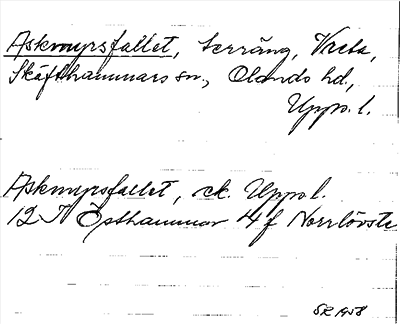 Askmyrsfallet, terräng, Vreta,
Skäfthammars sn., Olands hd.,
Upps. l.
Askmyrsfallet, ek. Upps l.
12 I Östhammar 4 f Norrlövsta
SR 1958